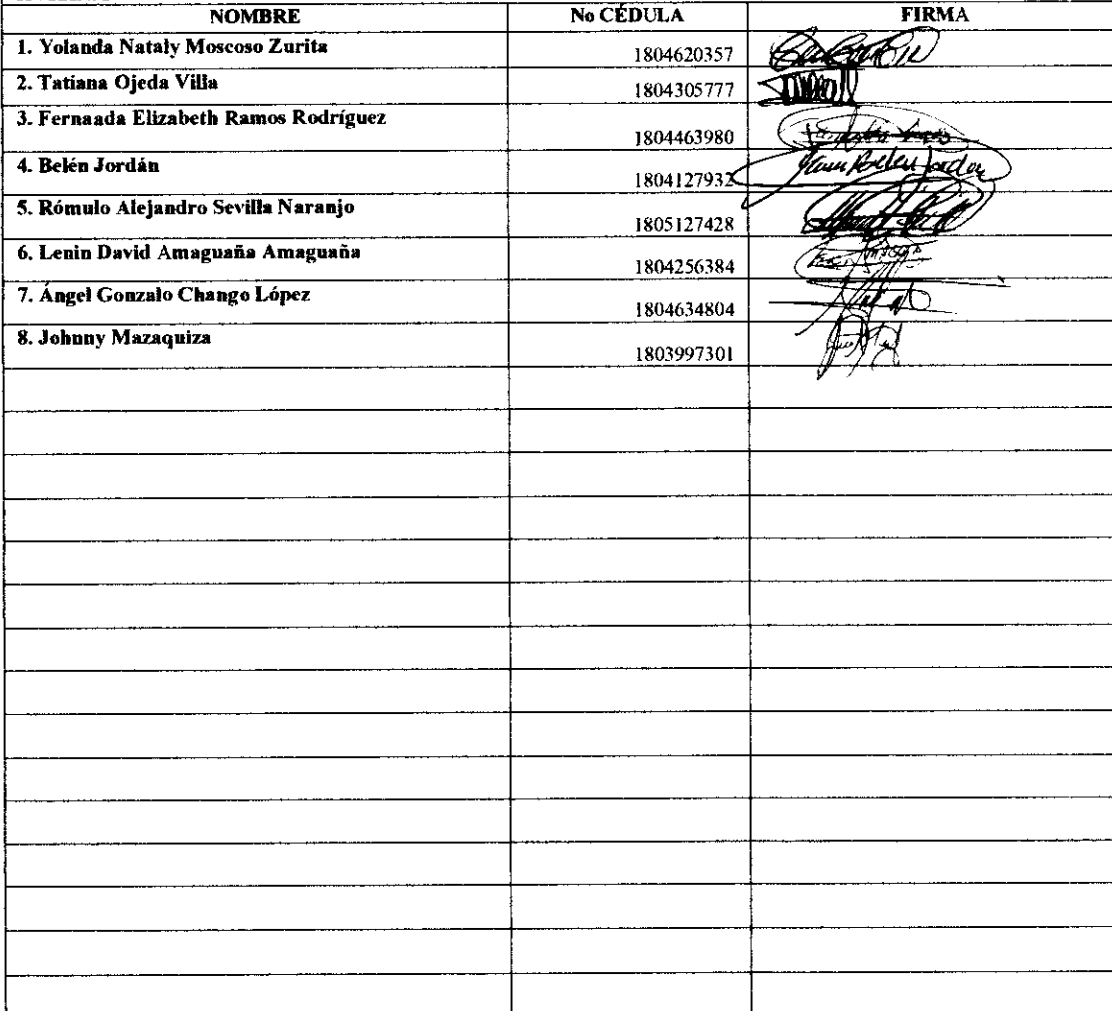 NOMBRE No CÉDULA FIRMA
1. Yolanda Nataly Moscoso Zurita 1804620357
2. Tatiana Ojeda Villa 1804305777
3. Fernaada Elizabeth Ramos Rodríguez 1804463980
4. Belén Jordán 1804127932 Belen Jordan
5. Rómulo Alejandro Sevilla Naranjo 1805127428
6. Lenin David Amaguaña Amaguaña 1804256384
7. Ángel Gonzalo Chango López 1804634804
8. Johnny Mazaquiza 1803997301